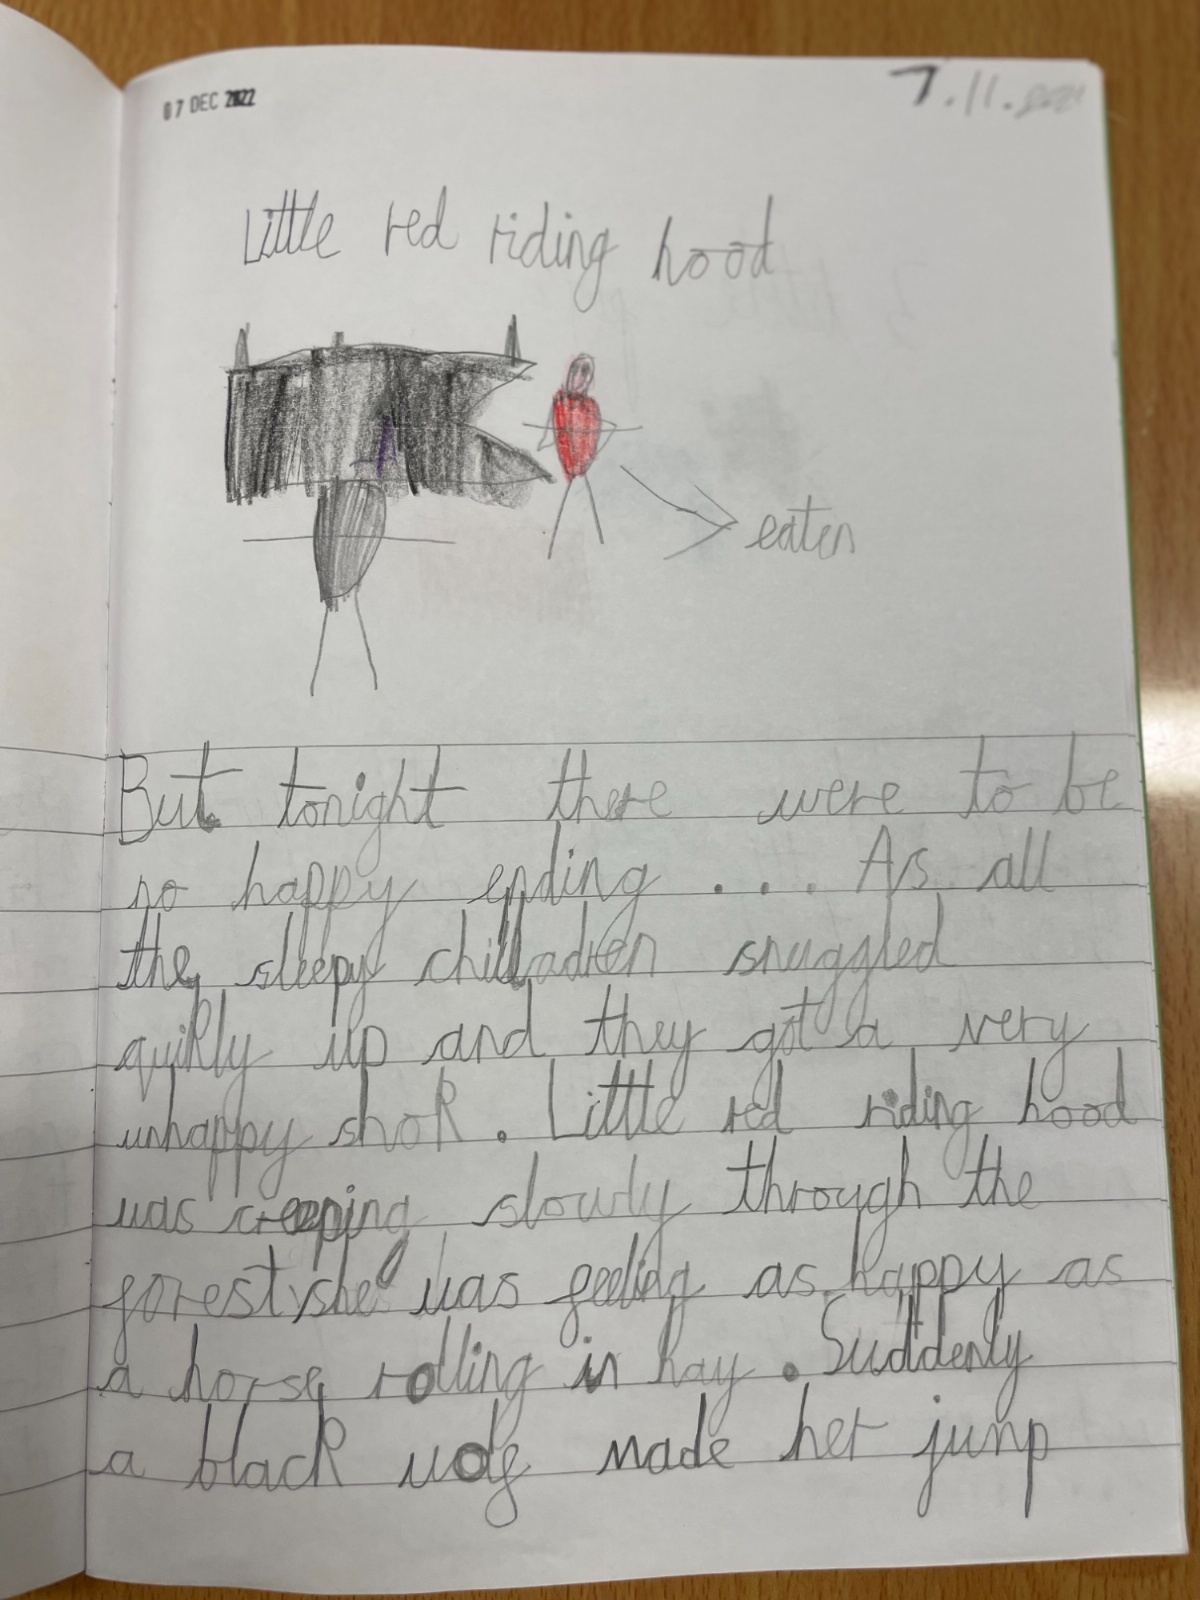 07 DEC 2022
7.11.
Little red riding hood
eaten
But tonight there were to be
no happy ending . . . As all
the sleepy chilladren snuggled
quikly up and they got a very
unhappy shok. Little red riding hood
was creeping slowly through the
forest, she was feeling as happy as
a horse rolling in hay. Suddenly
a black wolf made her jump